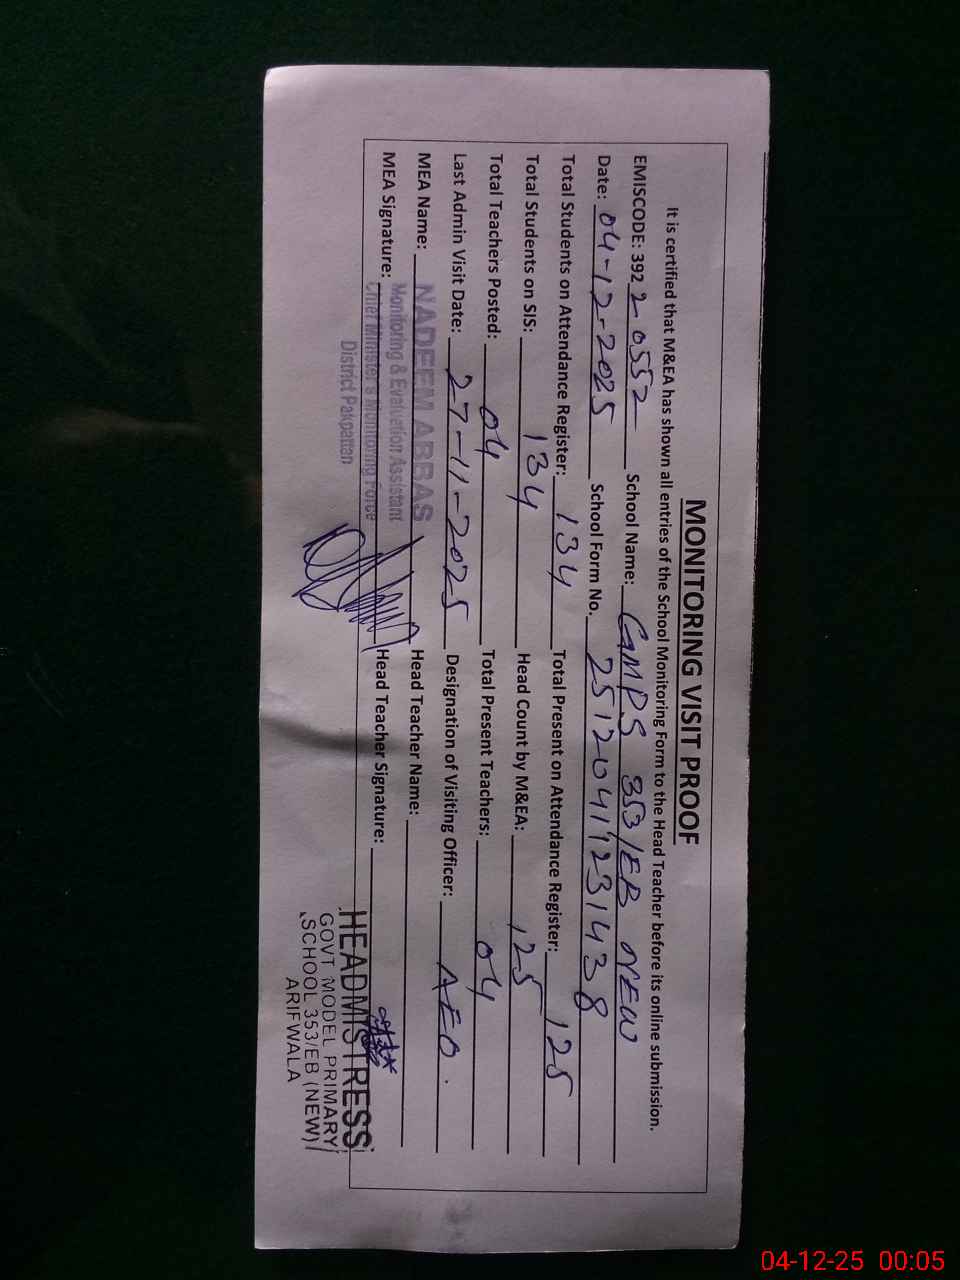 MONITORING VISIT PROOF
It is certified that M&EA has shown all entries of the School Monitoring Form to the Head Teacher before its online submission.
EMISCODE: 392 20552 School Name: GMPS 353/EB NEW
Date: 04-12-2025 School Form No. 25120411231438
Total Students on Attendance Register: 134 Total Present on Attendance Register: 125
Total Students on SIS: 134 Head Count by M&EA: 125
Total Teachers Posted: 04 Total Present Teachers: 04
Last Admin Visit Date: 27-11-2025 Designation of Visiting Officer: AEO.
MEA Name: NADEEM ABBAS Head Teacher Name:
Monitoring & Evaluation Assistant
MEA Signature: Chief Minister's Monitoring Force Head Teacher Signature:
District Pakpattan
HEADMISTRESS
GOVT MODEL PRIMARY
SCHOOL 353/EB (NEW)
ARIFWALA
04-12-25 00:05